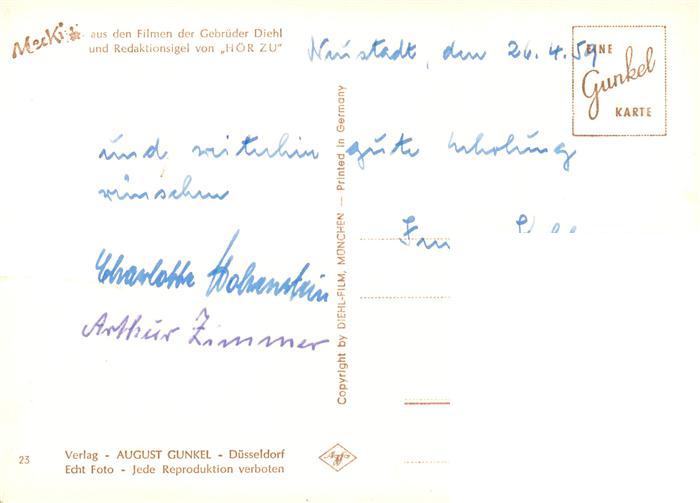 Mecki aus den Filmen der Gebrüder Diehl
und Redaktionsigel von „HÖR ZU"
Neustadt, den 26.4.59
EINE
Gunkel
KARTE
und weiterhin gute Erholung
wünschen
Charlotte Hohenstein
Arthur Zimmer
Copyright by DIEHL-FILM, MÜNCHEN — Printed in Germany
23
Verlag - AUGUST GUNKEL - Düsseldorf
Echt Foto - Jede Reproduktion verboten
Agfa